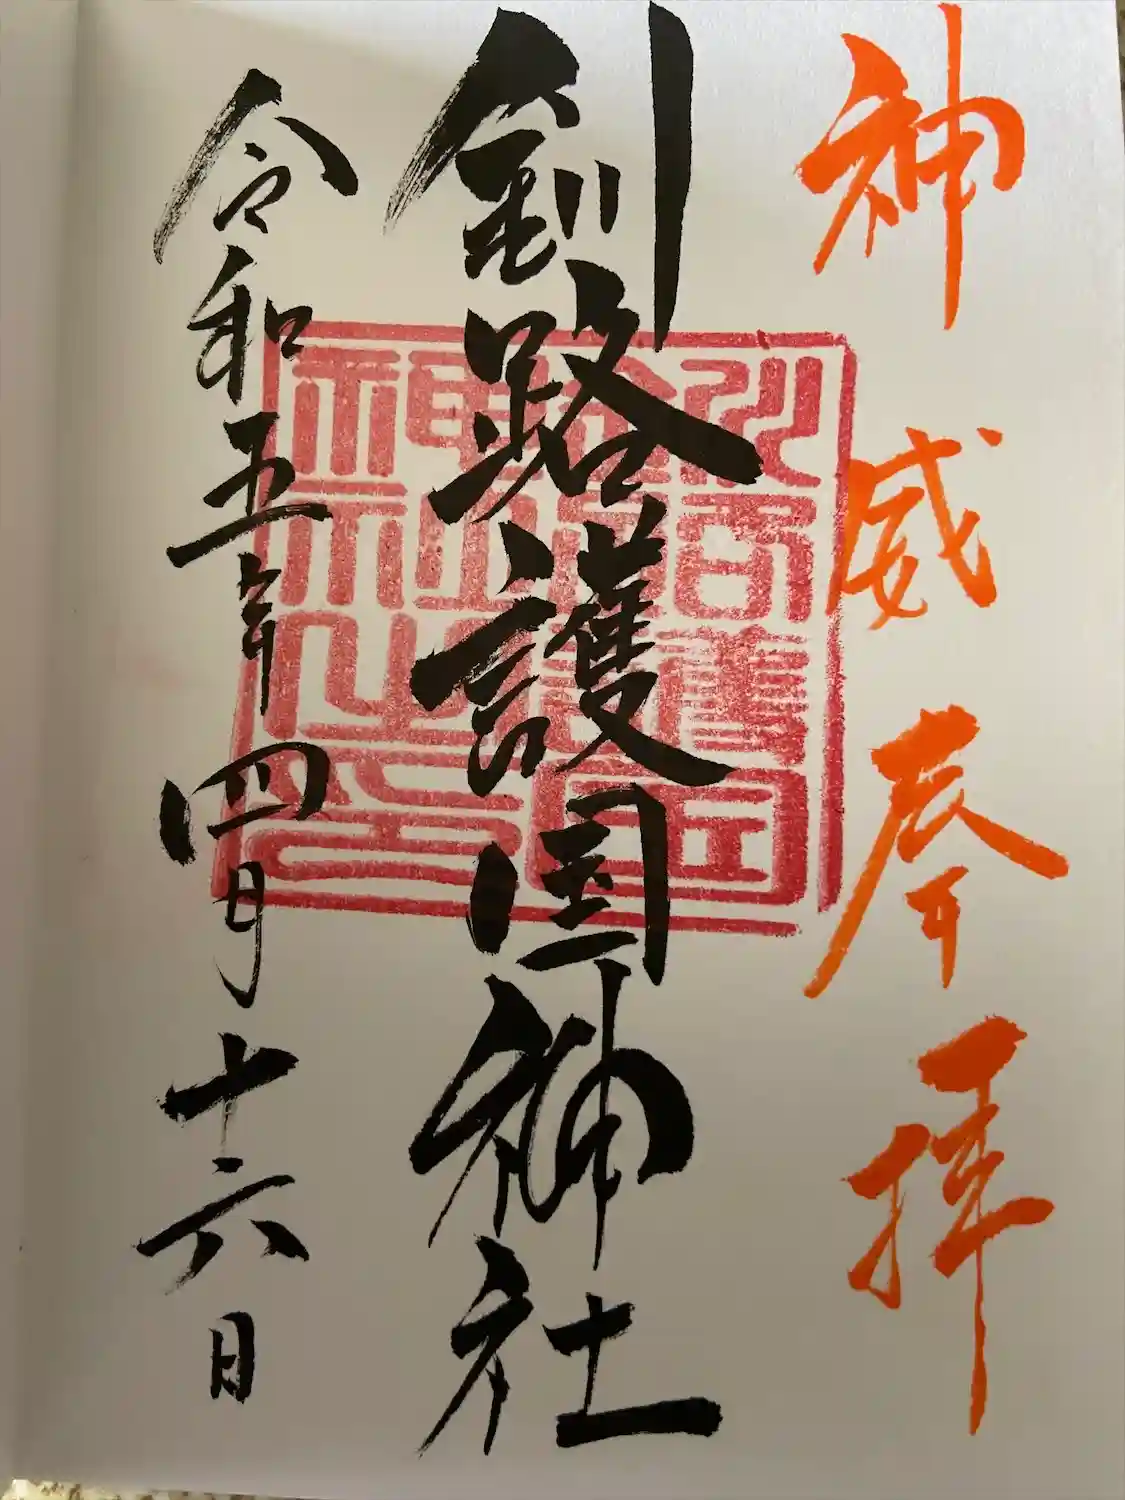 神威奉拝
釧路護国神社
令和五年四月十六日
釧路護国
神社之印